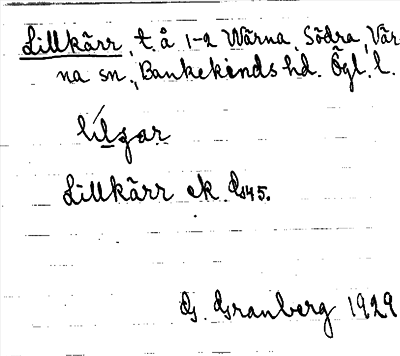 Lillkärr, t. å 1-2 Wärna, Södra, Vär-
na sn., Bankekinds hd. Ögl. l.
lílzar
Lillkärr ek. Ds45.
G. Granberg 1929